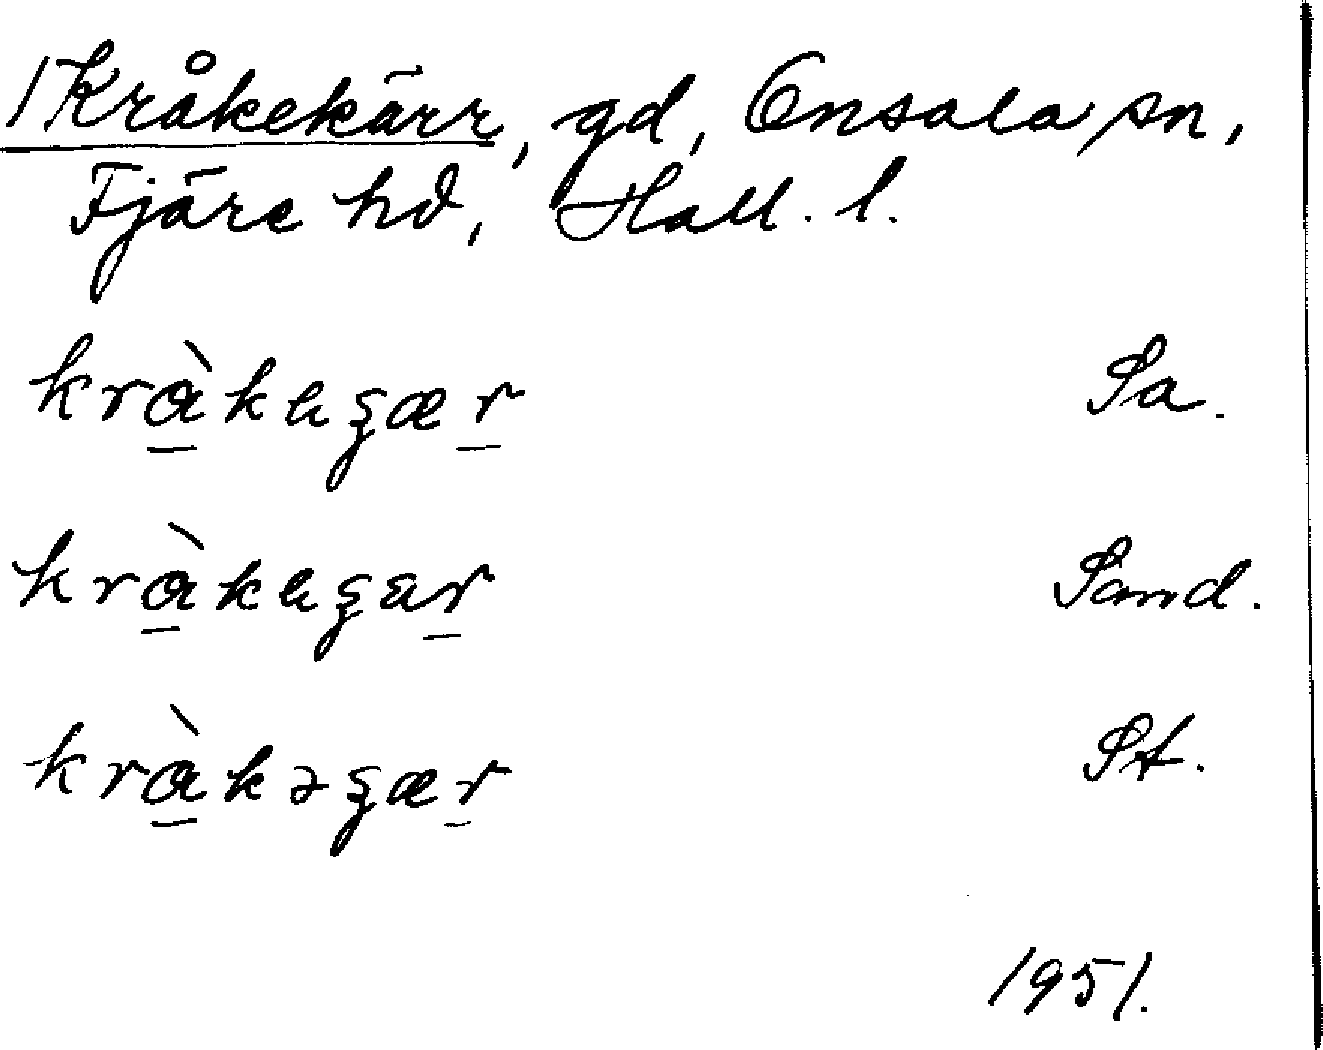 Kråkekärr, gd, Onsala sn,
Fjäre hd, Hall. l.
kràkaʒær Sa.
kràkaʒar Sand.
kràkəʒær St.
1951.